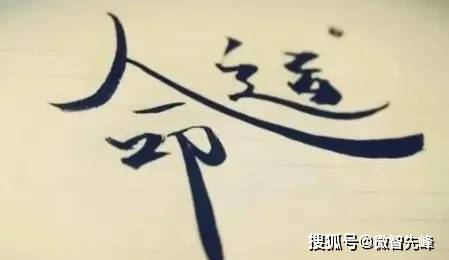 命运
搜狐号@微智先峰